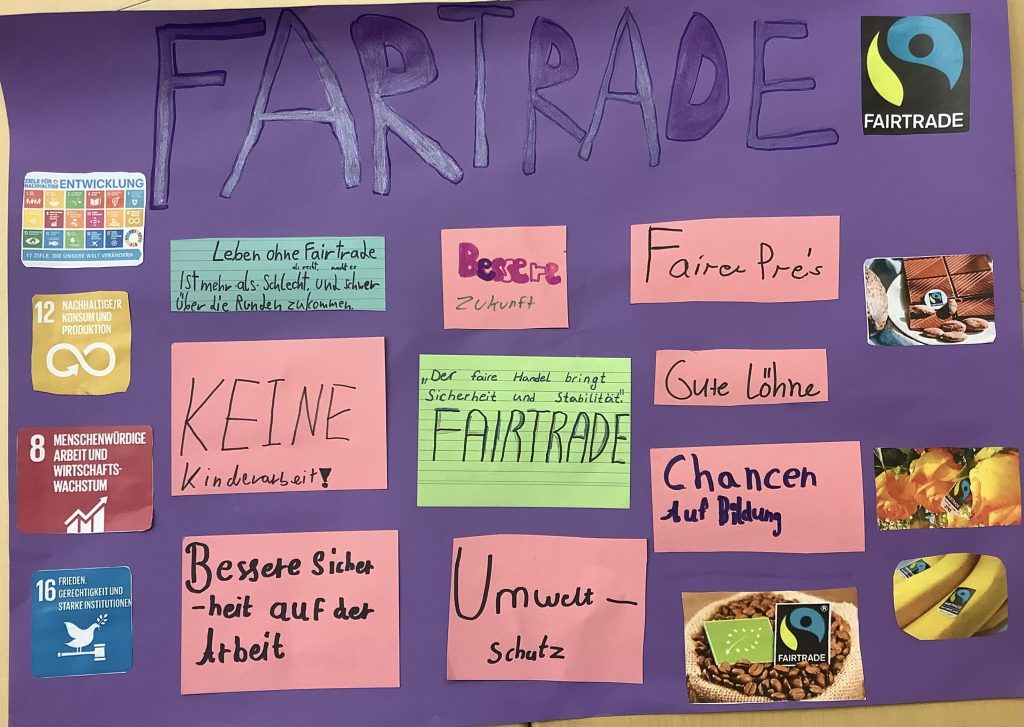 FARTRADE
FAIRTRADE
ZIELE FÜR
NACHHALTIGE ENTWICKLUNG
17 ZIELE, DIE UNSERE WELT VERÄNDERN
Leben ohne Fairtrade
Ist mehr als Schlecht, und schwer
über die Runden zukommen.
Bessere
Zukunft
Fairer Preis
12 NACHHALTIGE/R
KONSUM UND
PRODUKTION
KEINE
Kinderarbeit!
„Der faire Handel bringt
Sicherheit und Stabilität."
FAIRTRADE
Gute Löhne
8 MENSCHENWÜRDIGE
ARBEIT UND
WIRTSCHAFTS-
WACHSTUM
Chancen
Auf Bildung
16 FRIEDEN,
GERECHTIGKEIT UND
STARKE INSTITUTIONEN
Bessere Sicher
-heit auf der
Arbeit
Umwelt-
schutz
FAIRTRADE